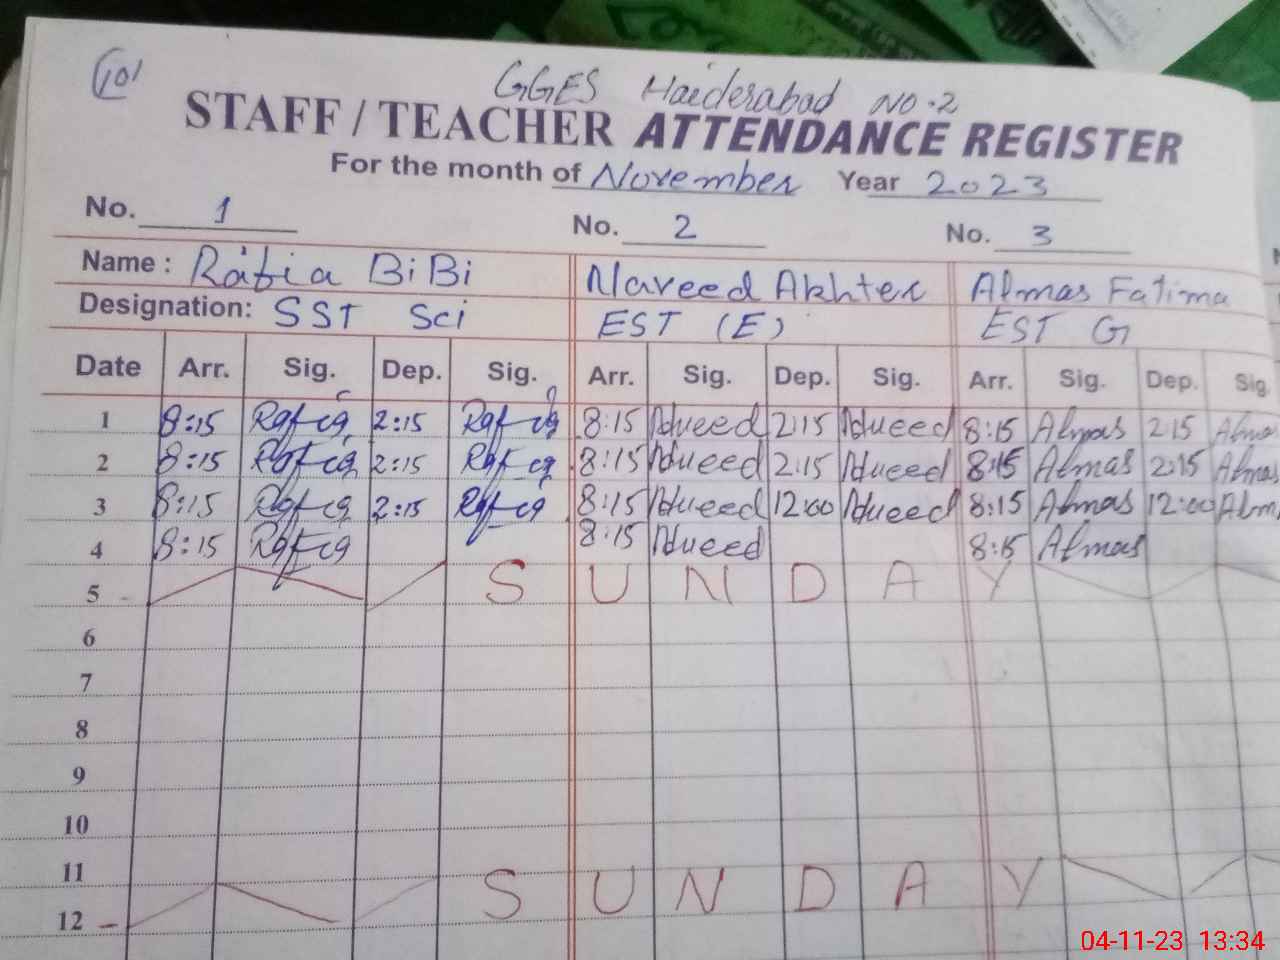 101
GGES Haiderabad NO.2
STAFF / TEACHER ATTENDANCE REGISTER
For the month of November Year 2023
No. 1 No. 2 No. 3
Name : Rabia BiBi Naveed Akhter Almas Fatima
Designation: SST Sci EST (E) EST G
Date Arr. Sig. Dep. Sig. Arr. Sig. Dep. Sig. Arr. Sig. Dep. Sig.
1 8:15 2:15 8:15 2:15 8:15 Almas 2:15
2 8:15 2:15 8:15 2:15 8:15 Almas 2:15 Almas
3 8:15 2:15 8:15 12:00 8:15 Almas 12:00 Alm
4 8:15 8:15 8:15 Almas
5 S U N D A Y
6
7
8
9
10
11
12 S U N D A Y
04-11-23 13:34